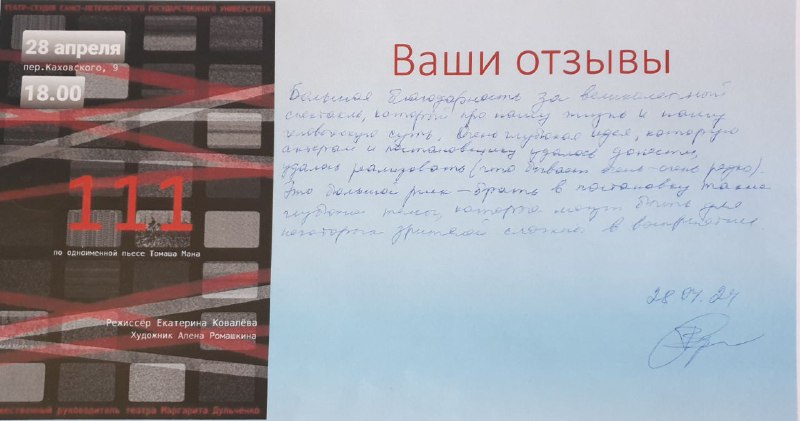 ТЕАТР-СТУДИЯ САНКТ-ПЕТЕРБУРГСКОГО ГОСУДАРСТВЕННОГО УНИВЕРСИТЕТА
28 апреля
пер.Каховского, 9
18.00
111
по одноименной пьесе Томаша Мана
Режиссёр Екатерина Ковалёва
Художник Алена Ромашкина
ественный руководитель театра Маргарита Дульченко
Ваши отзывы
Большая благодарность за великолепный
спектакль, который про нашу жизнь и нашу
человеческую суть. Очень глубокая идея, которую
актерам и постановщику удалось донести,
удалось реализовать (что бывает очень-очень редко).
Это большой риск – брать в постановку такие
глубокие темы, которые могут быть для
некоторых зрителей сложны в восприятии
28.04.24